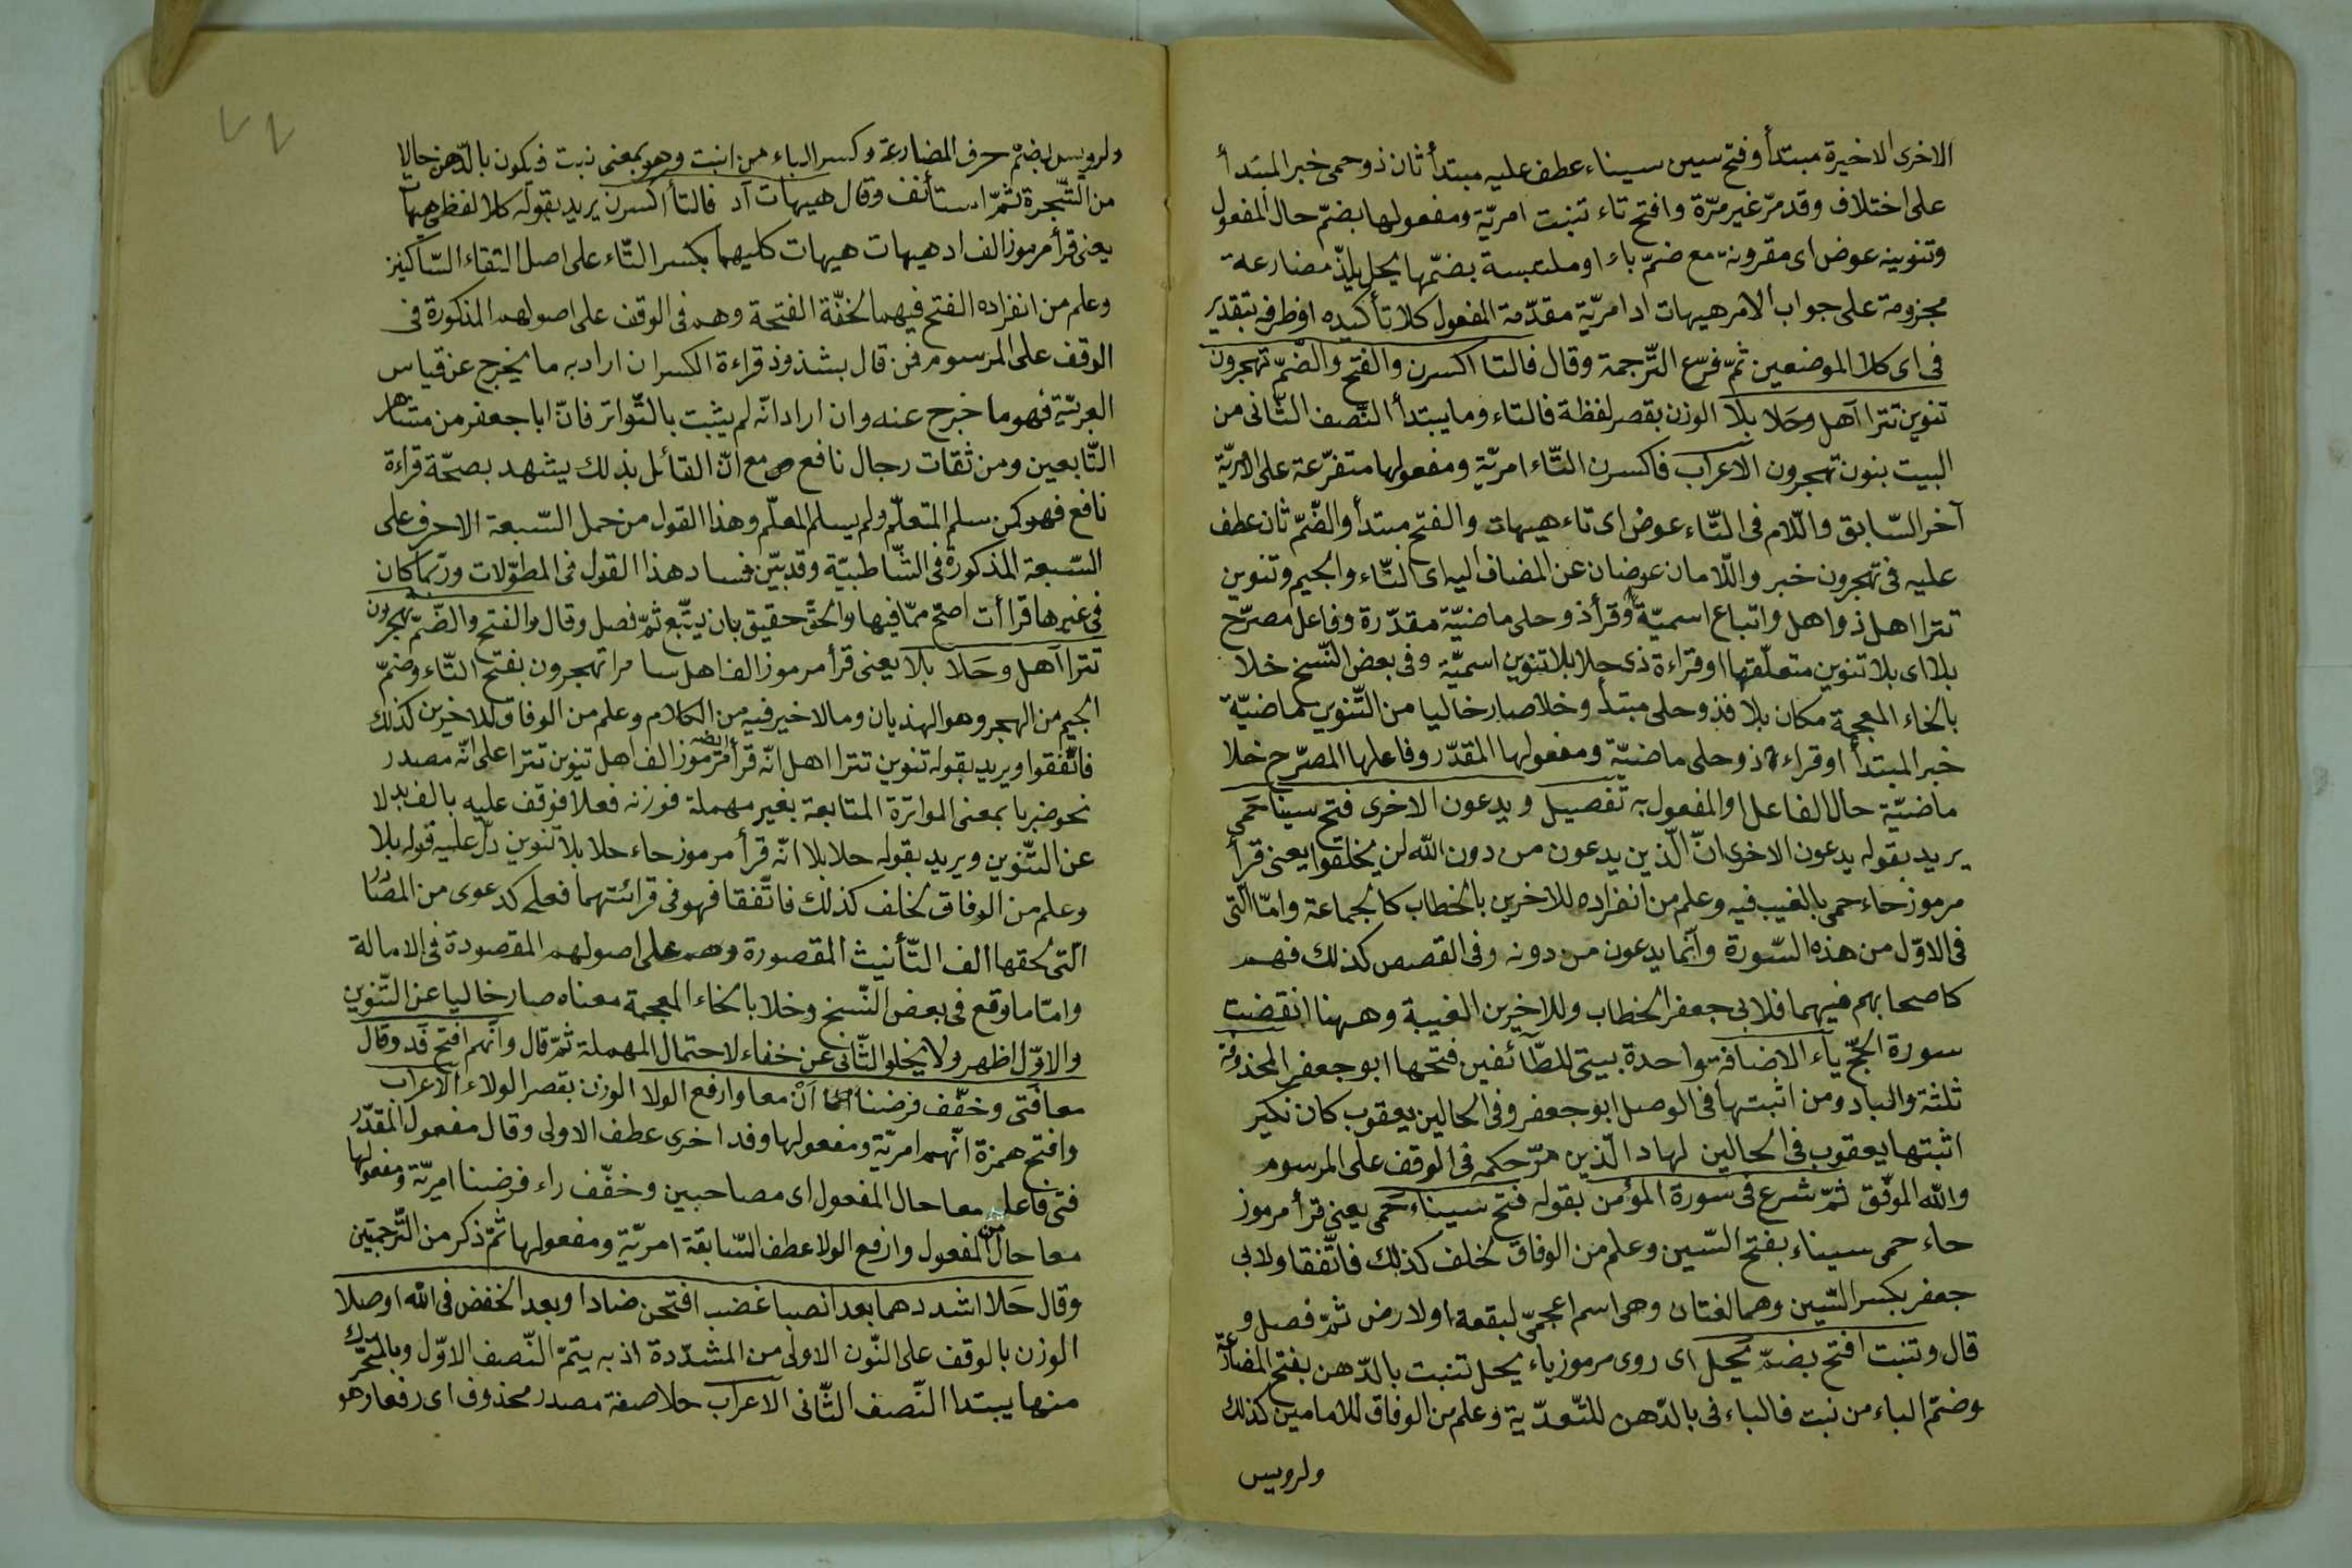 الاخرى الاخيرة مبتدأ وفتح سين سيناء عطف عليه مبتدأ ثان ذو حمى خبر المبتدأ
على اختلاف وقد مرّ غير مرّة وافتح تاء تنبت امريّة ومفعولها بضمّ حال المفعول
وتنوينه عوض اى مقرونة مع ضمّ باء او ملتبسة بضمّها يحل يلذّ مضارعة
مجزومة على جواب الامر هيهات اد امريّة مقدّمة المفعول كلا تأكيده او ظرفه بتقدير
فى اى كلا الموضعين ثمّ فرّع التّرجمة وقال فالتا اكسرن والفتح والضّمّ تهجرون
تنوين تترا آهل وحَلا بلا الوزن بقصر لفظة فالتاء وما يبتدأ النّصف الثّانى من
البيت بنون تهجرون الاعراب فاكسرن التّاء امريّة ومفعولها متفرّعة على الامريّة
آخر السّابق واللّام فى التّاء عوض اى تاء هيهات والفتح مبتدأ والضّمّ ثان عطف
عليه فى تهجرون خبر واللّامان عوضان عن المضاف اليه اى التّاء والجيم وتنوين
تترا اهل ذو اهل واتباع اسميّة وقرأ ذو حلى ماضيّة مقدّرة وفاعل مصرّح
بلا اى بلا تنوين متعلّقها او قراءة ذى حلا بلا تنوين اسميّة وفى بعض النّسخ خلا
بالخاء المعجمة مكان بلا فذو حلى مبتدأ وخلا صار خاليا من التّنوين ماضيّة
خبر المبتدأ او قراءة ذو حلى ماضيّة ومفعولها المقدّر وفاعلها المصرّح خلا
ماضيّة حال الفاعل او المفعول به تفصيل ويدعون الاخرى فتح سينا حَمى
يريد بقوله يدعون الاخرى انّ الّذين يدعون من دون الله لن يخلقوا يعنى قرأ
مرموز حاء حمى بالغيب فيه وعلم من انفراده للاخرين بالخطاب كالجماعة وامّا الّتى
فى الاوّل من هذه السّورة وانّما يدعون من دونه وفى القصص كذلك فهم
كاصحابهم فيهما فلابى جعفر الخطاب وللاخرين الغيبة وههنا انقضت
سورة الحجّ ياء الاضافة واحدة بيتى للطّائفين فتحها ابو جعفر المحذوفة
ثلثة والباد ومن اثبتها فى الوصل ابو جعفر وفى الحالين يعقوب كان نكير
اثبتها يعقوب فى الحالين لهاد الّذين مرّ حكمه فى الوقف على المرسوم
والله الموفّق ثمّ شرع فى سورة المؤمن بقوله فتح سيناء حَمى يعنى قرأ مرموز
حاء حمى سيناء بفتح السّين وعلم من الوفاق لخلف كذلك فاتّفقا ولابى
جعفر بكسر السّين وهما لغتان وهى اسم اعجمىّ لبقعة اولارض ثمّ فصل و
قال وتنبت افتح بضمّ يحل اى روى مرموز ياء يحل تنبت بالدّهن بفتح المضارعة
وضمّ الباء من نبت فالباء فى بالدّهن للتّعدّية وعلم من الوفاق للامامين كذلك
ولرويس
ولرويس بضمّ حرف المضارعة وكسر الباء من انبت وهو بمعنى نبت فيكون بالدّهن حالا
من الشّجرة ثمّ استأنف وقال هيهات آد فالتا اكسرن يريد بقوله كلا لفظى هيهات
يعنى قرأ مرموز الف اد هيهات هيهات كليهما بكسر التّاء على اصل التقاء السّاكنين
وعلم من انفراده الفتح فيهما لخفّة الفتحة وهم فى الوقف على اصولهم المذكورة فى
الوقف على المرسوم فمن قال بشذوذ قراءة الكسر ان اراد به ما يخرج عن قياس
العربيّة فهو ما خرج عنه وان اراد انّه لم يثبت بالتّواتر فانّ ابا جعفر من مشاهير
التّابعين ومن ثقات رجال نافع مع انّ القائل بذلك يشهد بصحّة قراءة
نافع فهو كمن سلم المتعلّم ولم يسلم المعلّم وهذا القول من حمل السّبعة الاحرف على
السّبعة المذكورة فى الشّاطبيّة وقد بيّن فساد هذا القول فى المطوّلات وربّما كان
فى غيرها قراآت اصحّ ممّا فيها والحقّ حقيق بان يتّبع ثمّ فصل وقال والفتح والضّمّ تهجرون
تترا آهل وحَلا بلا يعنى قرأ مرموز الف اهل سامرا تهجرون بفتح التّاء وضمّ
الجيم من الهجر وهو الهذيان وما لا خير فيه من الكلام وعلم من الوفاق للاخرين كذلك
فاتّفقوا ويريد بقوله تنوين تترا اهل انّه قرأ مرموز الف اهل تنوين تترا على انّه مصدر
نحو ضربا بمعنى المواترة المتابعة بغير مهملة فوزنه فعلا فوقف عليه بالف بدلا
عن التّنوين ويريد بقوله حلا بلا انّه قرأ مرموز حاء حلا بلا تنوين دلّ عليه قوله بلا
وعلم من الوفاق لخلف كذلك فاتّفقا فهو فى قرائتهما فعلى كدعوى من المصادر
الّتى لحقها الف التّأنيث المقصورة وهم على اصولهم المقصودة فى الامالة
وامّا ما وقع فى بعض النّسخ وخلا بالخاء المعجمة معناه صار خاليا عن التّنوين
والاوّل اظهر ولا يخلو الثّانى عن خفاء لاحتمال المهملة ثمّ قال وانّهم افتح فد وقال
معا فَتى وخفّف فرضنا أنْ معا وارفع الولا الوزن بقصر الولاء الاعراب
وافتح همزة انّهم امريّة ومفعولها وفد اخرى عطف الاولى وقال مفعول المقدّر
فتى فاعله معا حال المفعول اى مصاحبين وخفّف راء فرضنا امريّة ومفعولها
معا حال من المفعول وارفع الولا عطف السّابقة امريّة ومفعولها ثمّ ذكر من التّرجمتين
وقال حَلا اشددهما بعد انصبا غضب افتحن ضادا وبعد الخفض فى الله اوصلا
الوزن بالوقف على النّون الاولى من المشدّدة اذ به يتمّ النّصف الاوّل وبالمتحرّك
منها يبتدا النّصف الثّانى الاعراب حلا صفة مصدر محذوف اى رفعا وهو